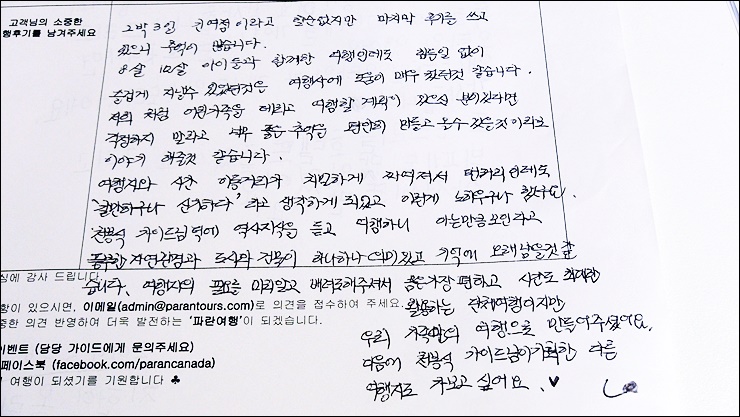 고객님의 소중한
행후기를 남겨주세요
2박 3일 권여정이라고 할순없지만 마지막 후기를 쓰고
있으니 추억이 많습니다.
8살 10살 아이들과 함께한 여행인데도 힘든일 없이
즐겁게 지낼수 있었던것은 여행사에 도움이 매우 컸던것 같습니다.
저희 처럼 어린가족을 데리고 여행할 계획이 있으신 분이있다면
걱정하지 말라고 너무 좋은 추억을 편안히 만들고 올수 있을것이라고
이야기 해줄것 같습니다.
여행지와 시간 이동거리가 치밀하게 짜여져서 먼거리인데도
'할만하구나 신기하다' 라고 생각하게 되었고 이런게 노하우구나 했답니다.
천봉식 가이드님 덕에 역사지식을 듣고 여행하니 아는만큼 보인다고
자연환경과 도시의 건물이 하나하나 의미있고 기억에 오래 남을것 같
습니다. 여행자의 필요를 미리알고 배려도해주셔서 몸은가장 편하고 시간도 최대한
활용하는 단체여행이지만
우리 가족만의 여행으로 만들어주셨어요.
다음에 천봉식 가이드님이 기획한 다른
여행지도 가보고 싶어요. ♥
심에 감사 드립니다.
항이 있으시면, 이메일(admin@parantours.com)로 의견을 접수하여 주세요.
중한 의견 반영하여 더욱 발전하는 '파란여행'이 되겠습니다.
이벤트 (담당 가이드에게 문의주세요)
페이스북 (facebook.com/parancanada)
여행이 되셨기를 기원합니다 ♣